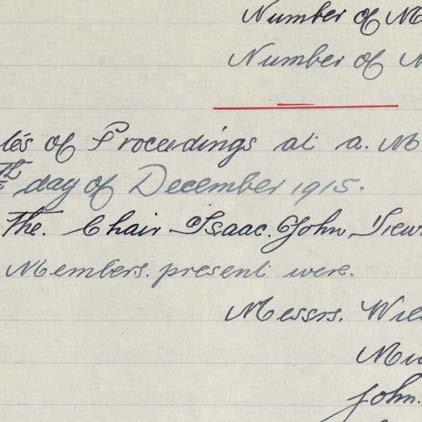 Number of M
Number of
les of Proceedings at a. M
th day of December 1915.
The. Chair. Isaac. John,
Members. present were.
Messrs. Wil
John.